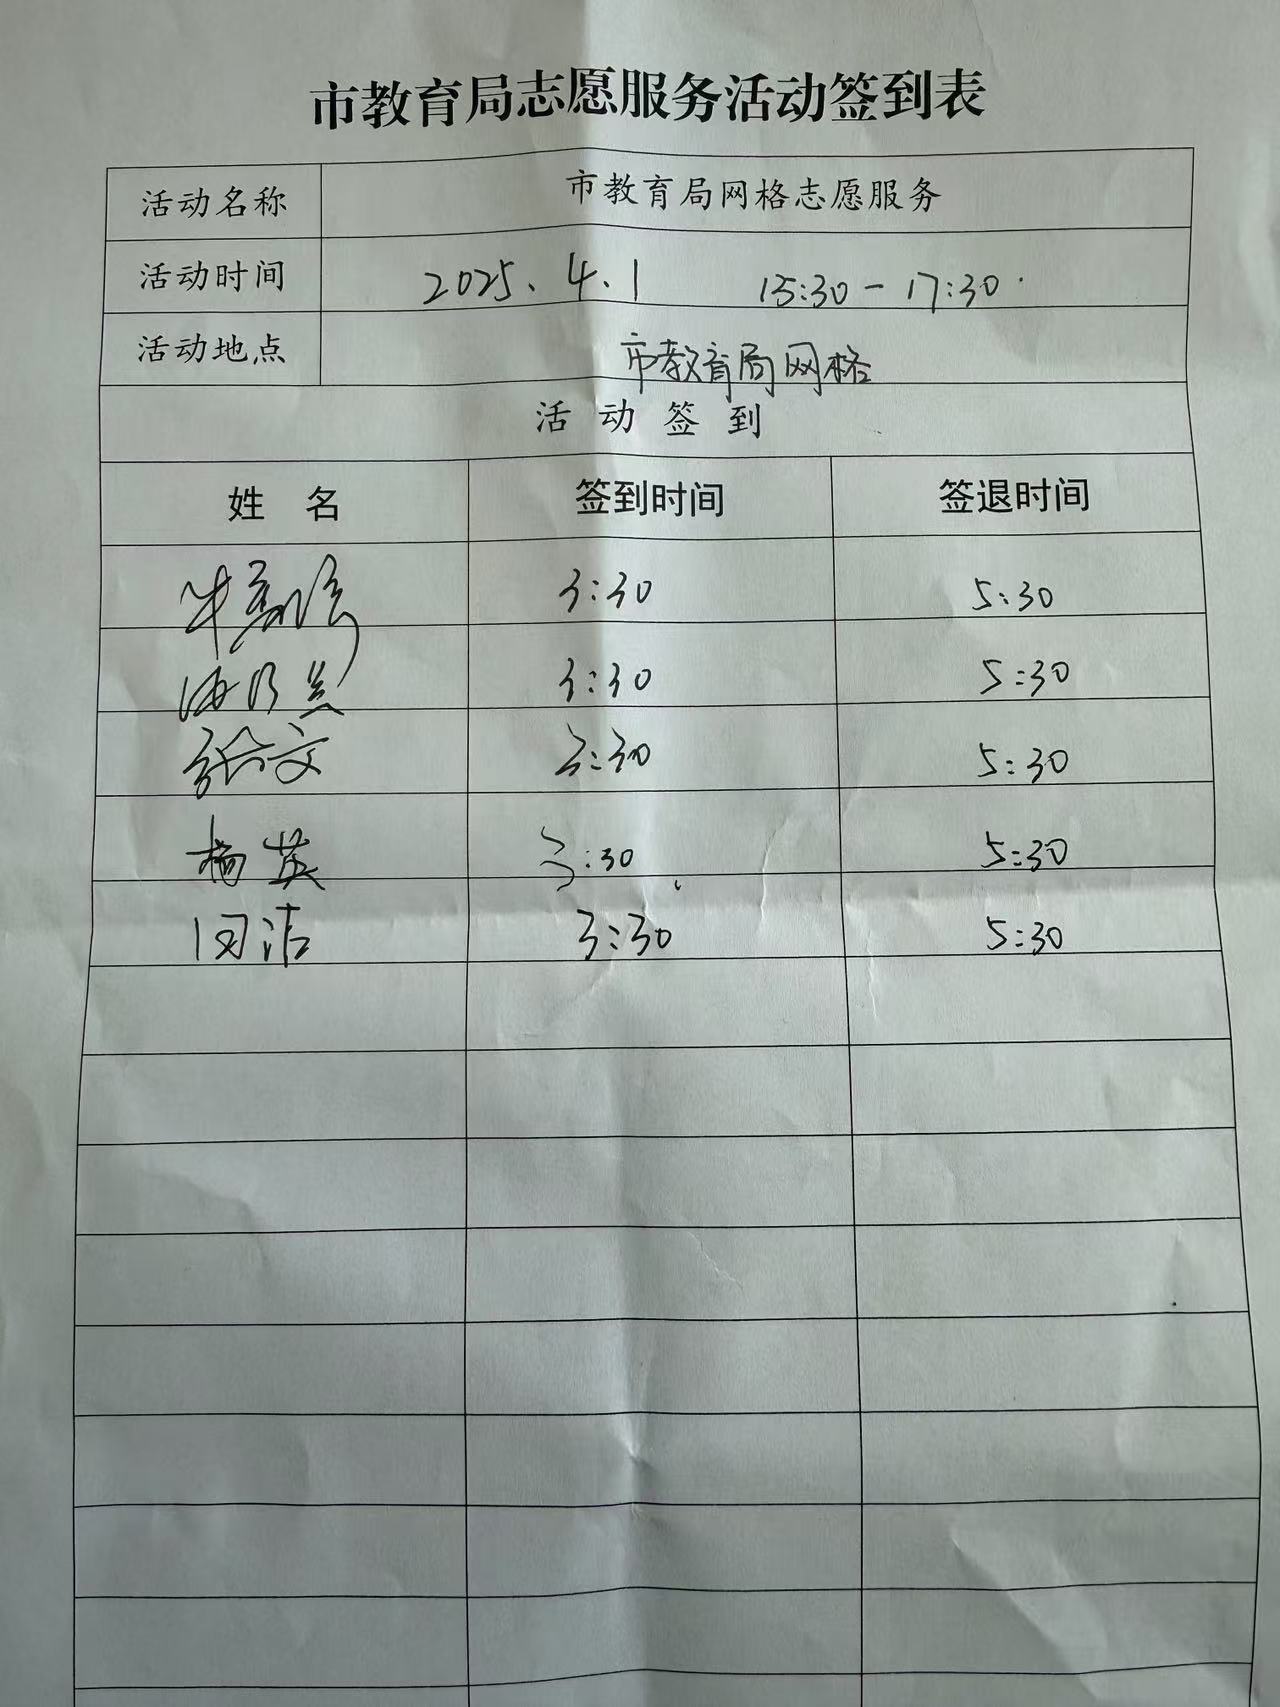 市教育局志愿服务活动签到表
活动名称 市教育局网格志愿服务
活动时间 2025.4.1 15:30-17:30
活动地点 市教育局网格
活动签到
姓名 签到时间 签退时间
3:30 5:30
3:30 5:30
3:30 5:30
杨英 3:30 5:30
闫洁 3:30 5:30